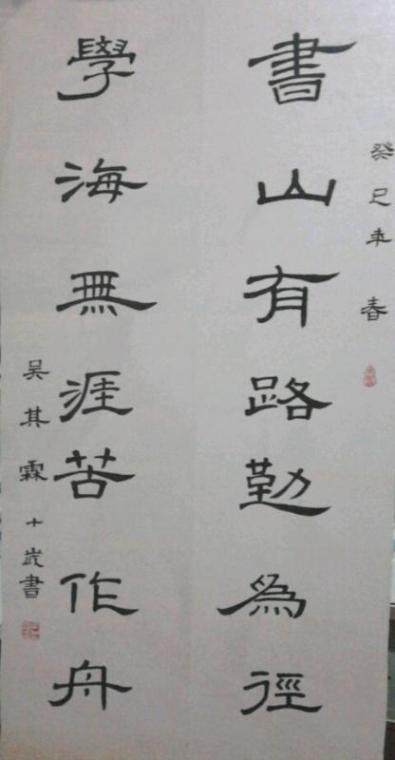 癸巳年 春
書山有路勤為徑
學海無涯苦作舟
吴其霖 十歲書